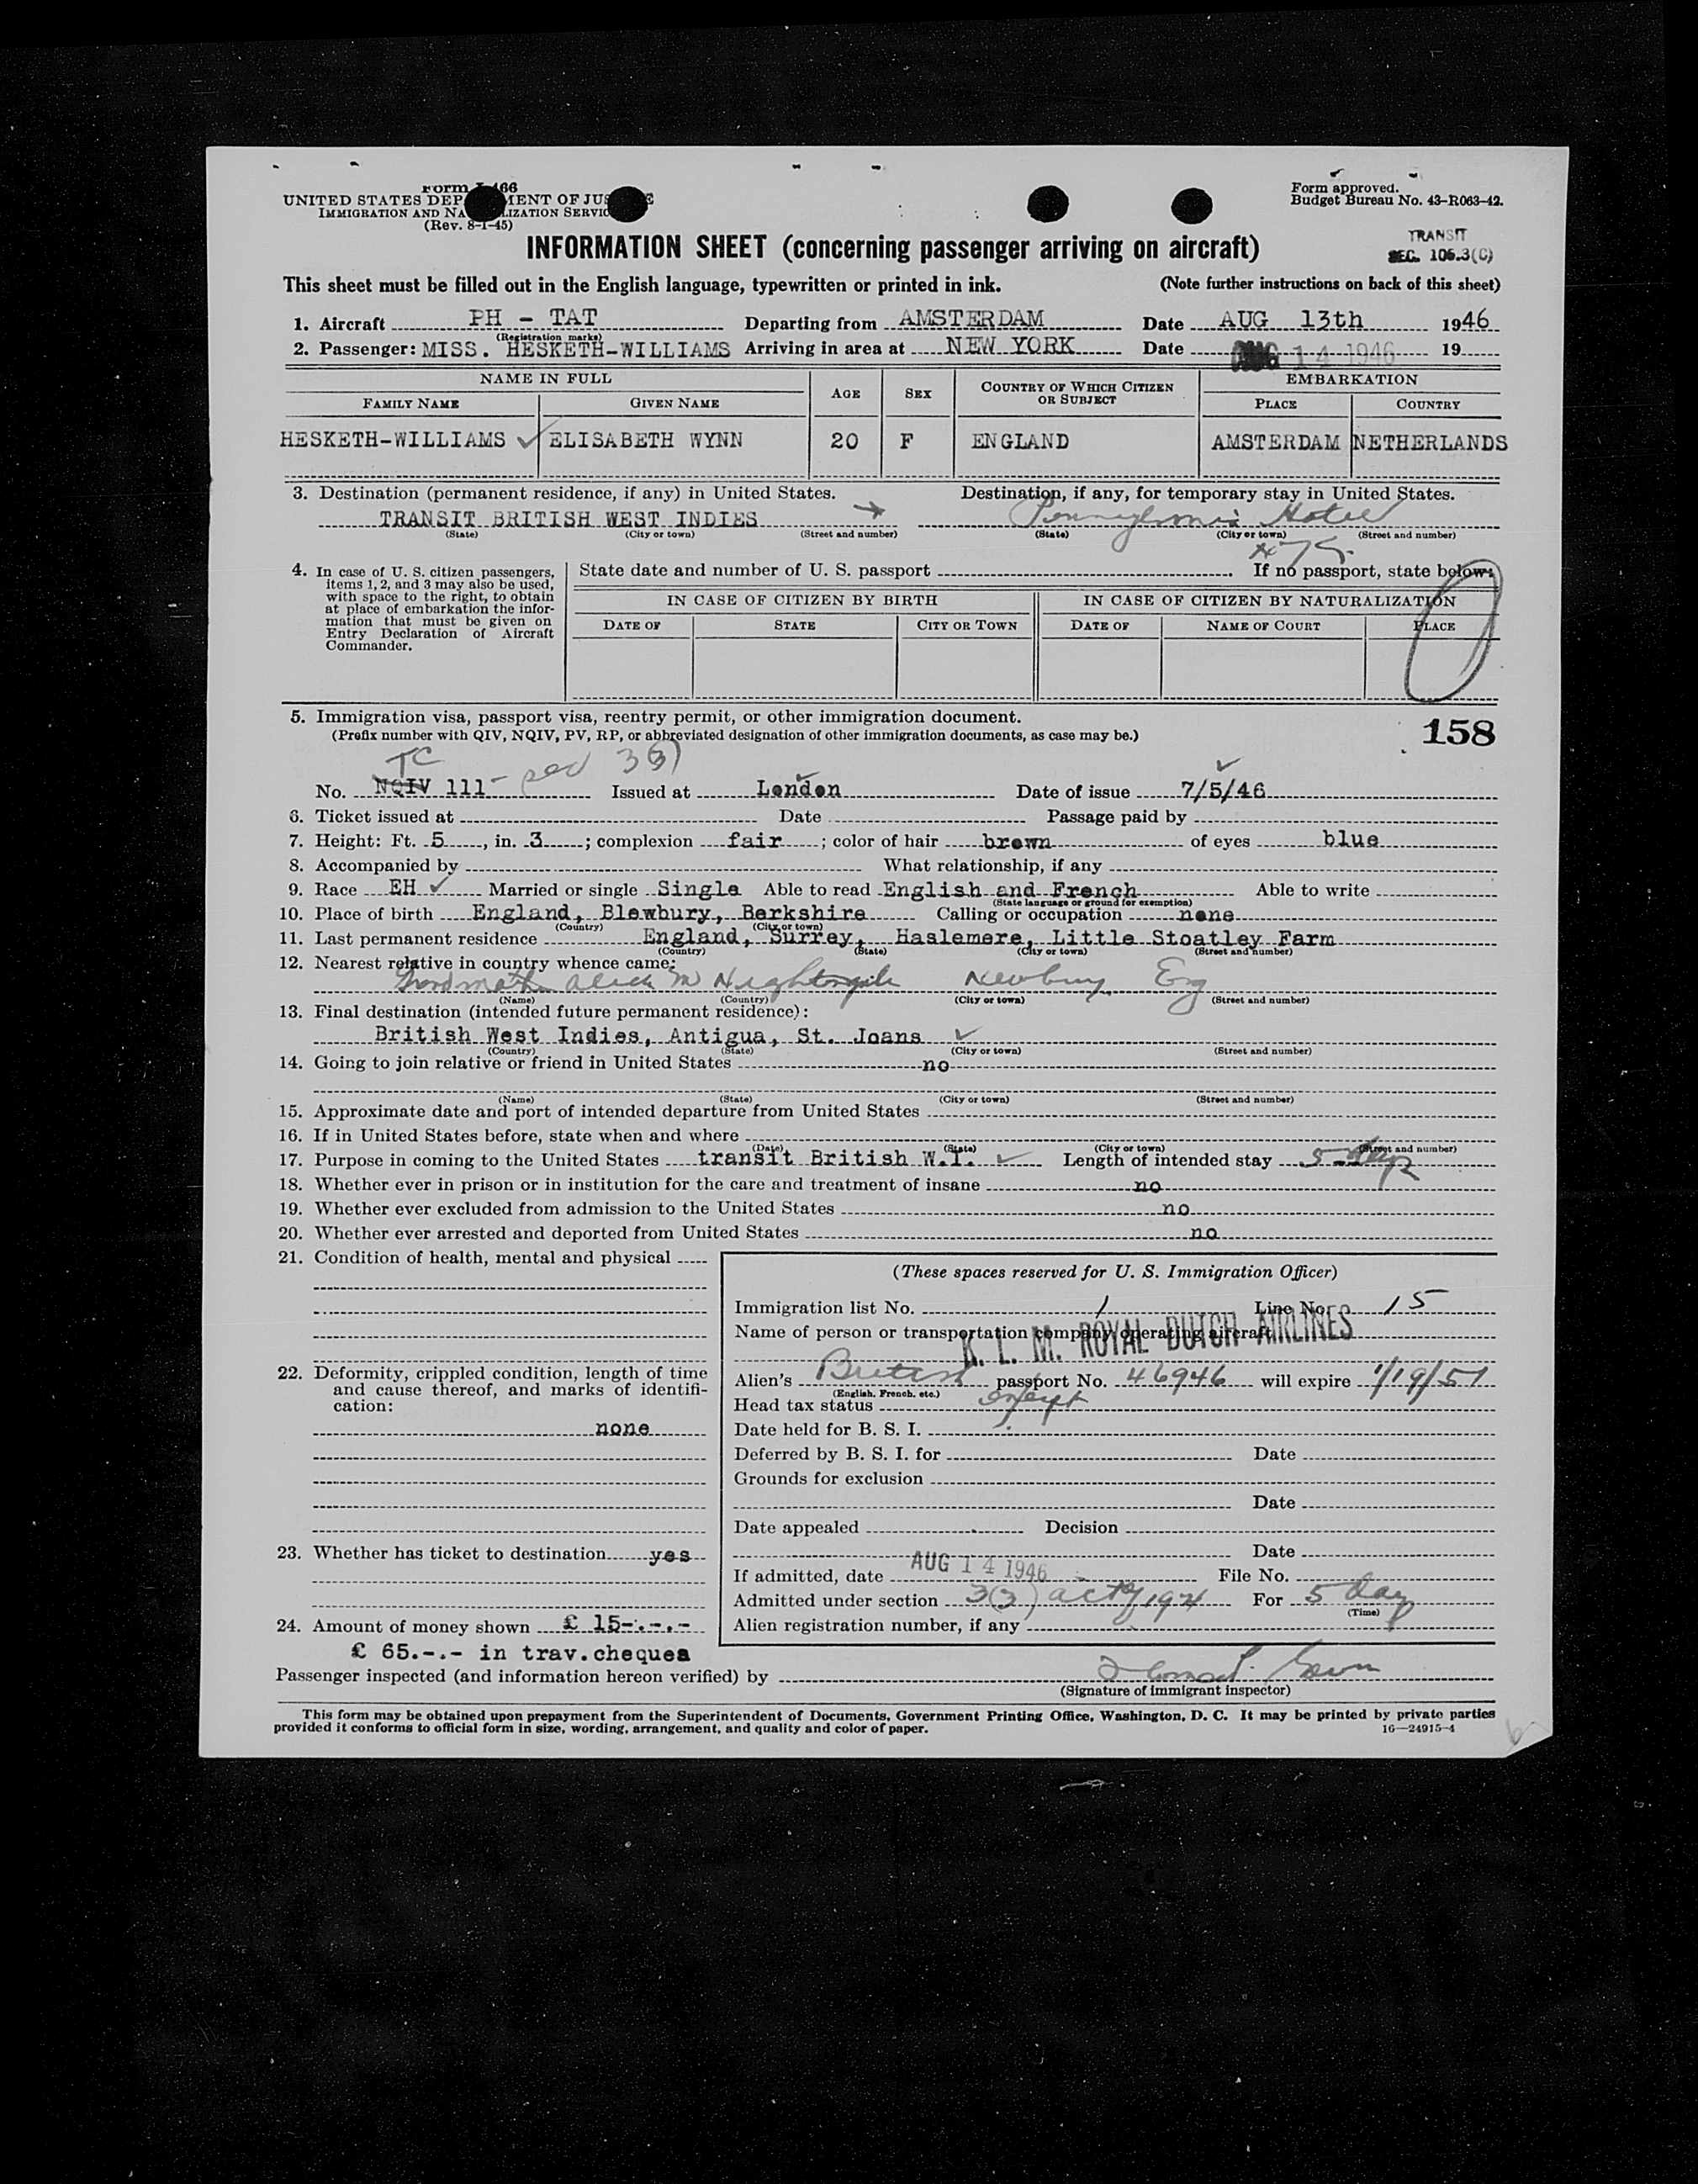 Form I-466
UNITED STATES DEPARTMENT OF JUSTICE
IMMIGRATION AND NATURALIZATION SERVICE
(Rev. 8-1-45)
Form approved.
Budget Bureau No. 43-R063-42.
INFORMATION SHEET (concerning passenger arriving on aircraft)
TRANSIT
SEC. 105.3(C)
This sheet must be filled out in the English language, typewritten or printed in ink. (Note further instructions on back of this sheet)
1. Aircraft PH - TAT Departing from AMSTERDAM Date AUG 13th 1946
(Registration marks)
2. Passenger: MISS. HESKETH-WILLIAMS Arriving in area at NEW YORK Date AUG 14 1946 19
NAME IN FULL AGE SEX COUNTRY OF WHICH CITIZEN OR SUBJECT EMBARKATION
FAMILY NAME GIVEN NAME PLACE COUNTRY
HESKETH-WILLIAMS ELISABETH WYNN 20 F ENGLAND AMSTERDAM NETHERLANDS
3. Destination (permanent residence, if any) in United States. Destination, if any, for temporary stay in United States.
TRANSIT BRITISH WEST INDIES Pennsylvania Hotel
(State) (City or town) (Street and number) (State) (City or town) (Street and number)
4. In case of U. S. citizen passengers, items 1, 2, and 3 may also be used, with space to the right, to obtain at place of embarkation the information that must be given on Entry Declaration of Aircraft Commander.
State date and number of U. S. passport If no passport, state below:
IN CASE OF CITIZEN BY BIRTH IN CASE OF CITIZEN BY NATURALIZATION
DATE OF STATE CITY OR TOWN DATE OF NAME OF COURT PLACE
5. Immigration visa, passport visa, reentry permit, or other immigration document.
158
(Prefix number with QIV, NQIV, PV, RP, or abbreviated designation of other immigration documents, as case may be.)
TC
No. NQIV 111 Issued at London Date of issue 7/5/46
6. Ticket issued at Date Passage paid by
7. Height: Ft. 5, in. 3; complexion fair; color of hair brown of eyes blue
8. Accompanied by What relationship, if any
9. Race EH Married or single Single Able to read English and French Able to write
(State language or ground for exemption)
10. Place of birth England, Blewbury, Berkshire Calling or occupation none
(Country) (City or town)
11. Last permanent residence England, Surrey, Haslemere, Little Stoatley Farm
(Country) (State) (City or town) (Street and number)
12. Nearest relative in country whence came:
Grandmother Alice M Nightingale Newbury Eng
(Name) (Country) (City or town) (Street and number)
13. Final destination (intended future permanent residence):
British West Indies, Antigua, St. Joans
(Country) (State) (City or town) (Street and number)
14. Going to join relative or friend in United States no
(Name) (State) (City or town) (Street and number)
15. Approximate date and port of intended departure from United States
16. If in United States before, state when and where
(Date) (State) (City or town) (Street and number)
17. Purpose in coming to the United States transit British W.I. Length of intended stay 5 days
18. Whether ever in prison or in institution for the care and treatment of insane no
19. Whether ever excluded from admission to the United States no
20. Whether ever arrested and deported from United States no
21. Condition of health, mental and physical
22. Deformity, crippled condition, length of time and cause thereof, and marks of identification:
none
23. Whether has ticket to destination yes
24. Amount of money shown £ 15-.-.-
£ 65.-.- in trav.cheques
(These spaces reserved for U. S. Immigration Officer)
Immigration list No. 1 Line No. 15
Name of person or transportation company operating aircraft
K. L. M. ROYAL DUTCH AIRLINES
Alien's British passport No. 46946 will expire 1/19/51
(English, French, etc.)
Head tax status exempt
Date held for B. S. I.
Deferred by B. S. I. for Date
Grounds for exclusion
Date
Date appealed Decision
Date
If admitted, date AUG 14 1946 File No.
Admitted under section 3(3) act of 1924 For 5 days
(Time)
Alien registration number, if any
Passenger inspected (and information hereon verified) by
(Signature of immigrant inspector)
This form may be obtained upon prepayment from the Superintendent of Documents, Government Printing Office, Washington, D. C. It may be printed by private parties
provided it conforms to official form in size, wording, arrangement, and quality and color of paper. 16—24915-4